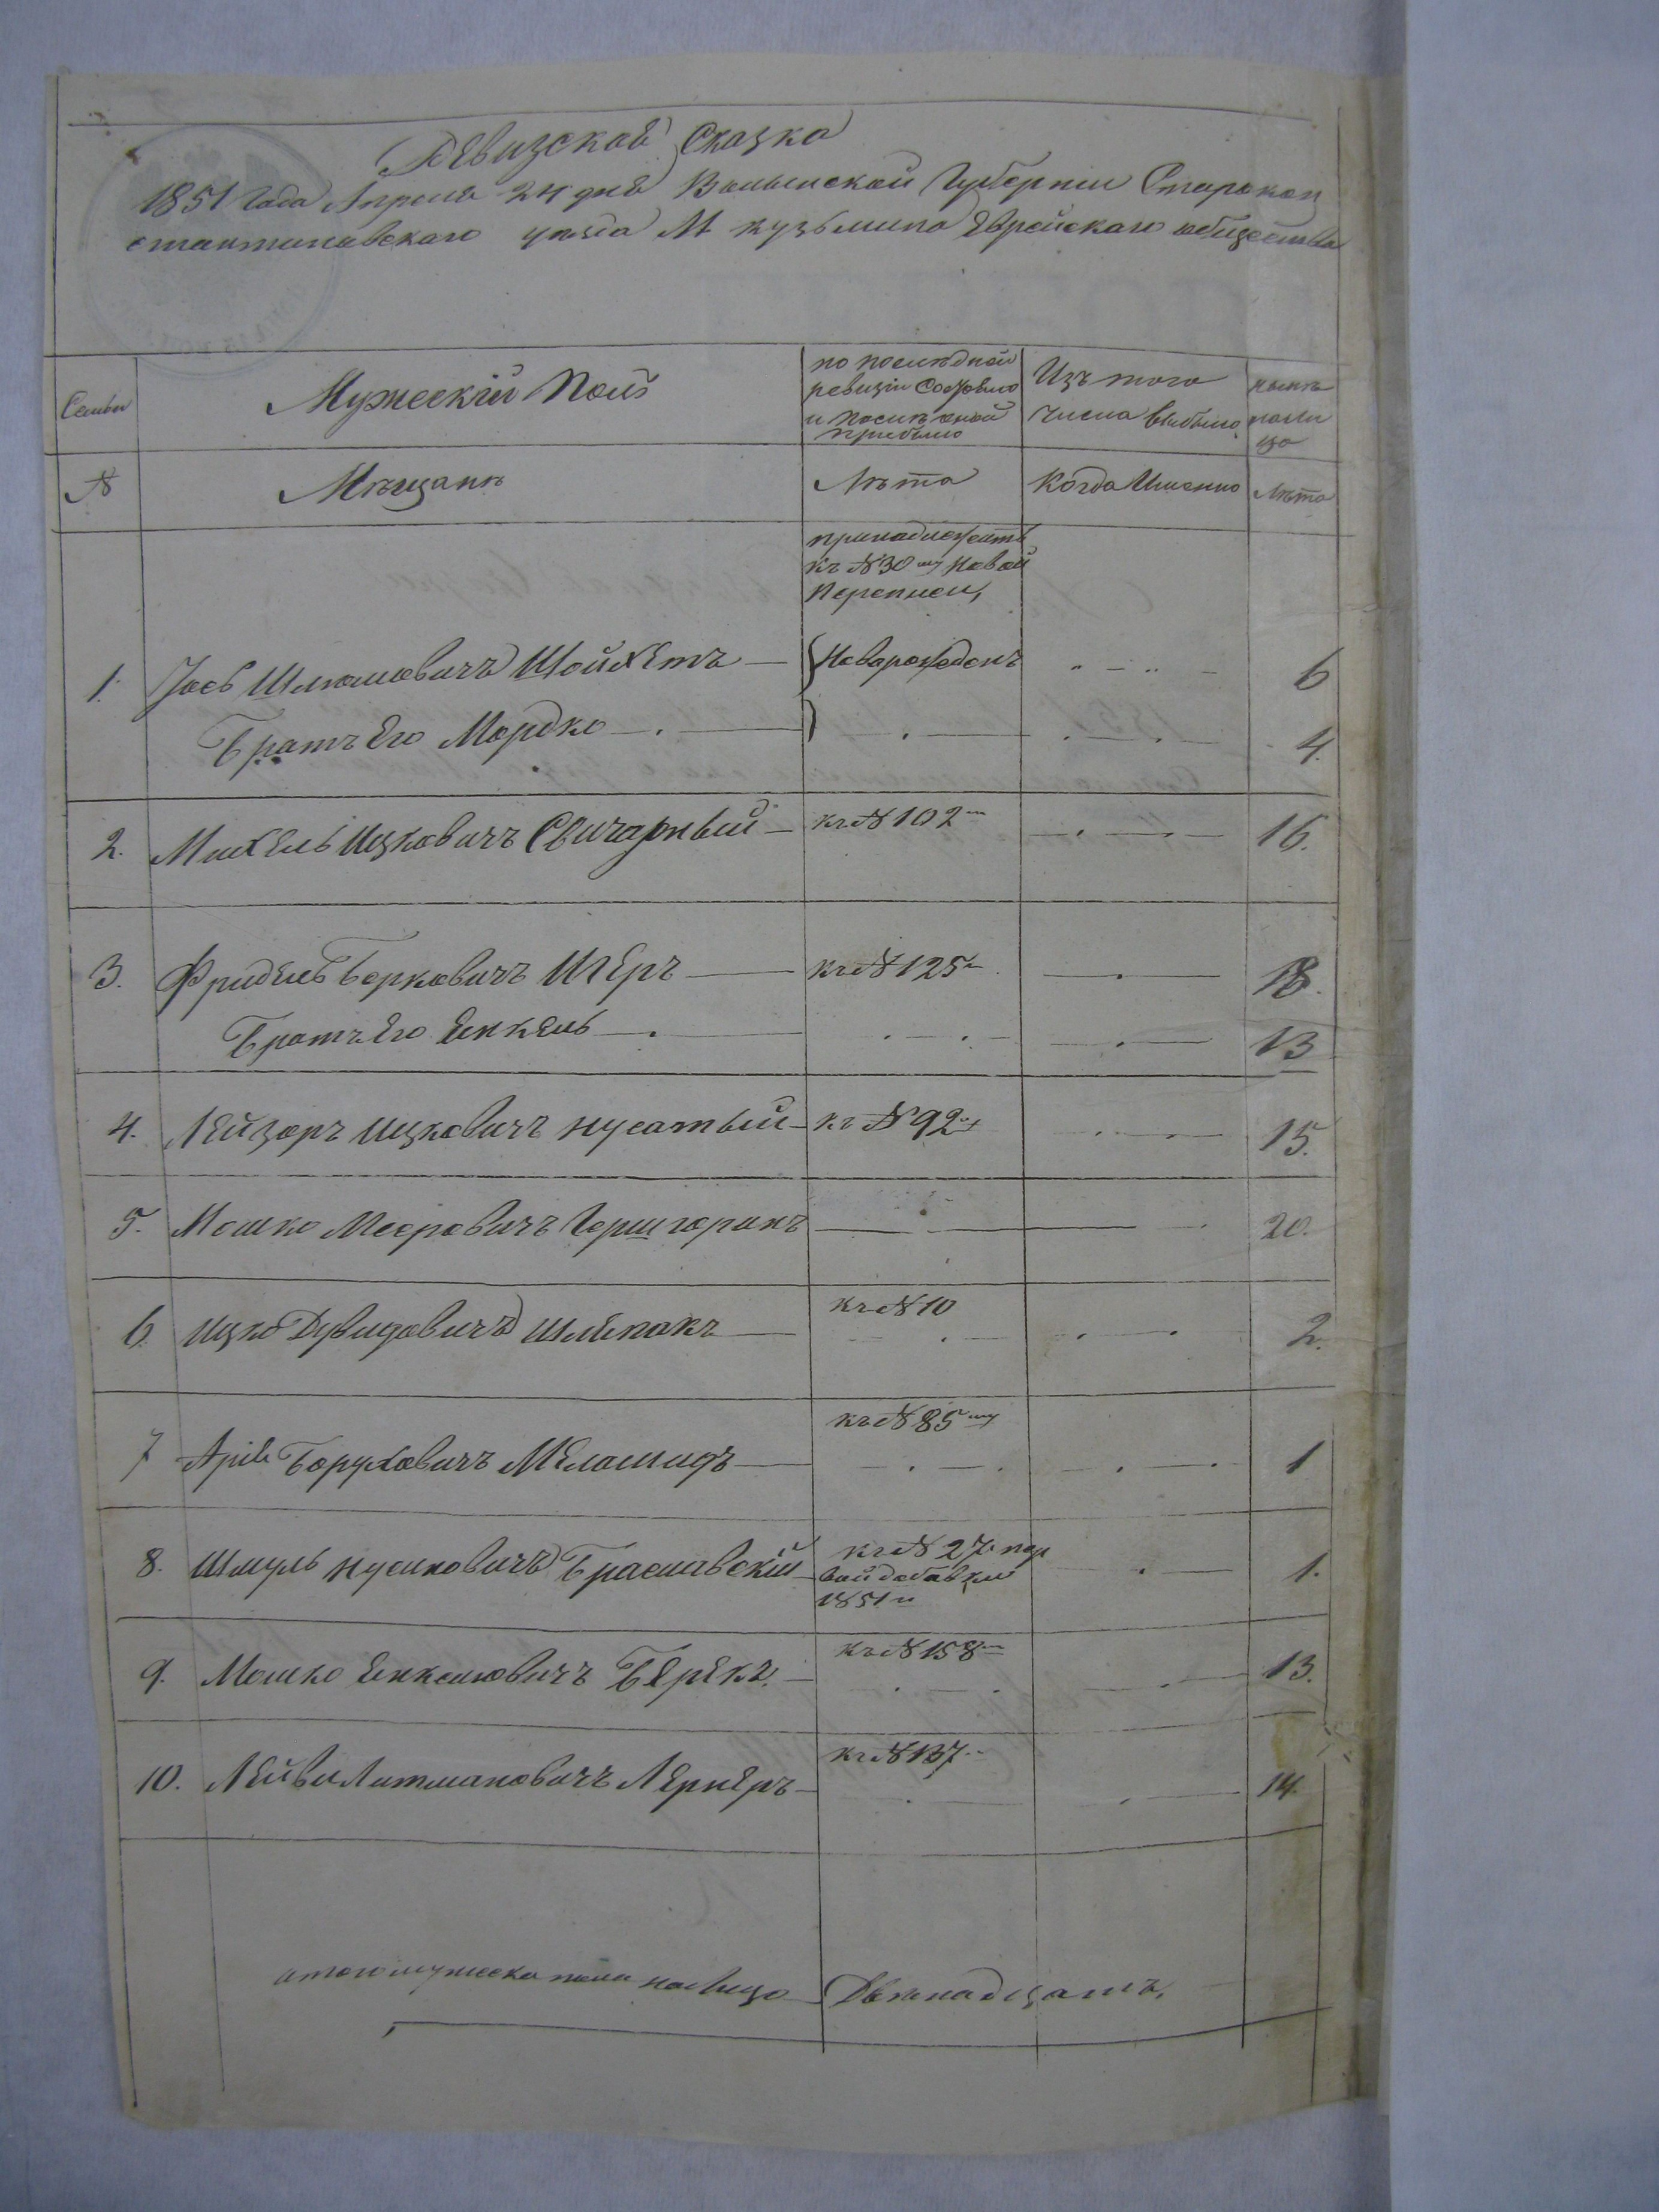 Ревизская Сказка
1851 Года Апреля 24 дня Волынской Губерніи Старокон
стантиновскаго уѣзда М Кузьмина Еврейскаго общества
Семьи
Мужескій Полъ
по последной ревизіи Состояло и после оной прибыло
Изъ того числа выбыло
нынѣ на лицо
№
Мѣщанѣ
Лѣта
Когда Именно
Лѣта
принадлежитъ
къ №30му Новой
Переписи,
1. Іось Шліомовичъ Шойхетъ — Новорожденъ 6
Братъ Его Мордко — 4.
2. Михель Ицковичъ Свичарный — къ №102 16.
3. Фридель Берковичъ Игеръ — къ №125 18.
Братъ Его Енкель — 13
4. Лейзоръ Ицковичъ Нусатый — къ №92 15.
5. Мошко Мееровичъ Гершгоринъ — 20.
6. Ицко Дувидовичъ Шлепакъ — къ №10 2.
7 Аріе Боруховичъ Меламидъ — къ №85му 1
8. Шмуль Нусиновичъ Браславскій — къ №27 пер
вой добавкы
1851
1.
9. Мошко Енкелювичъ Берекъ. — къ №158 13.
10. Лейви Литмановичъ Лернеръ — къ №137 14.
итого мужеска пола на лицо Двѣнадцать,